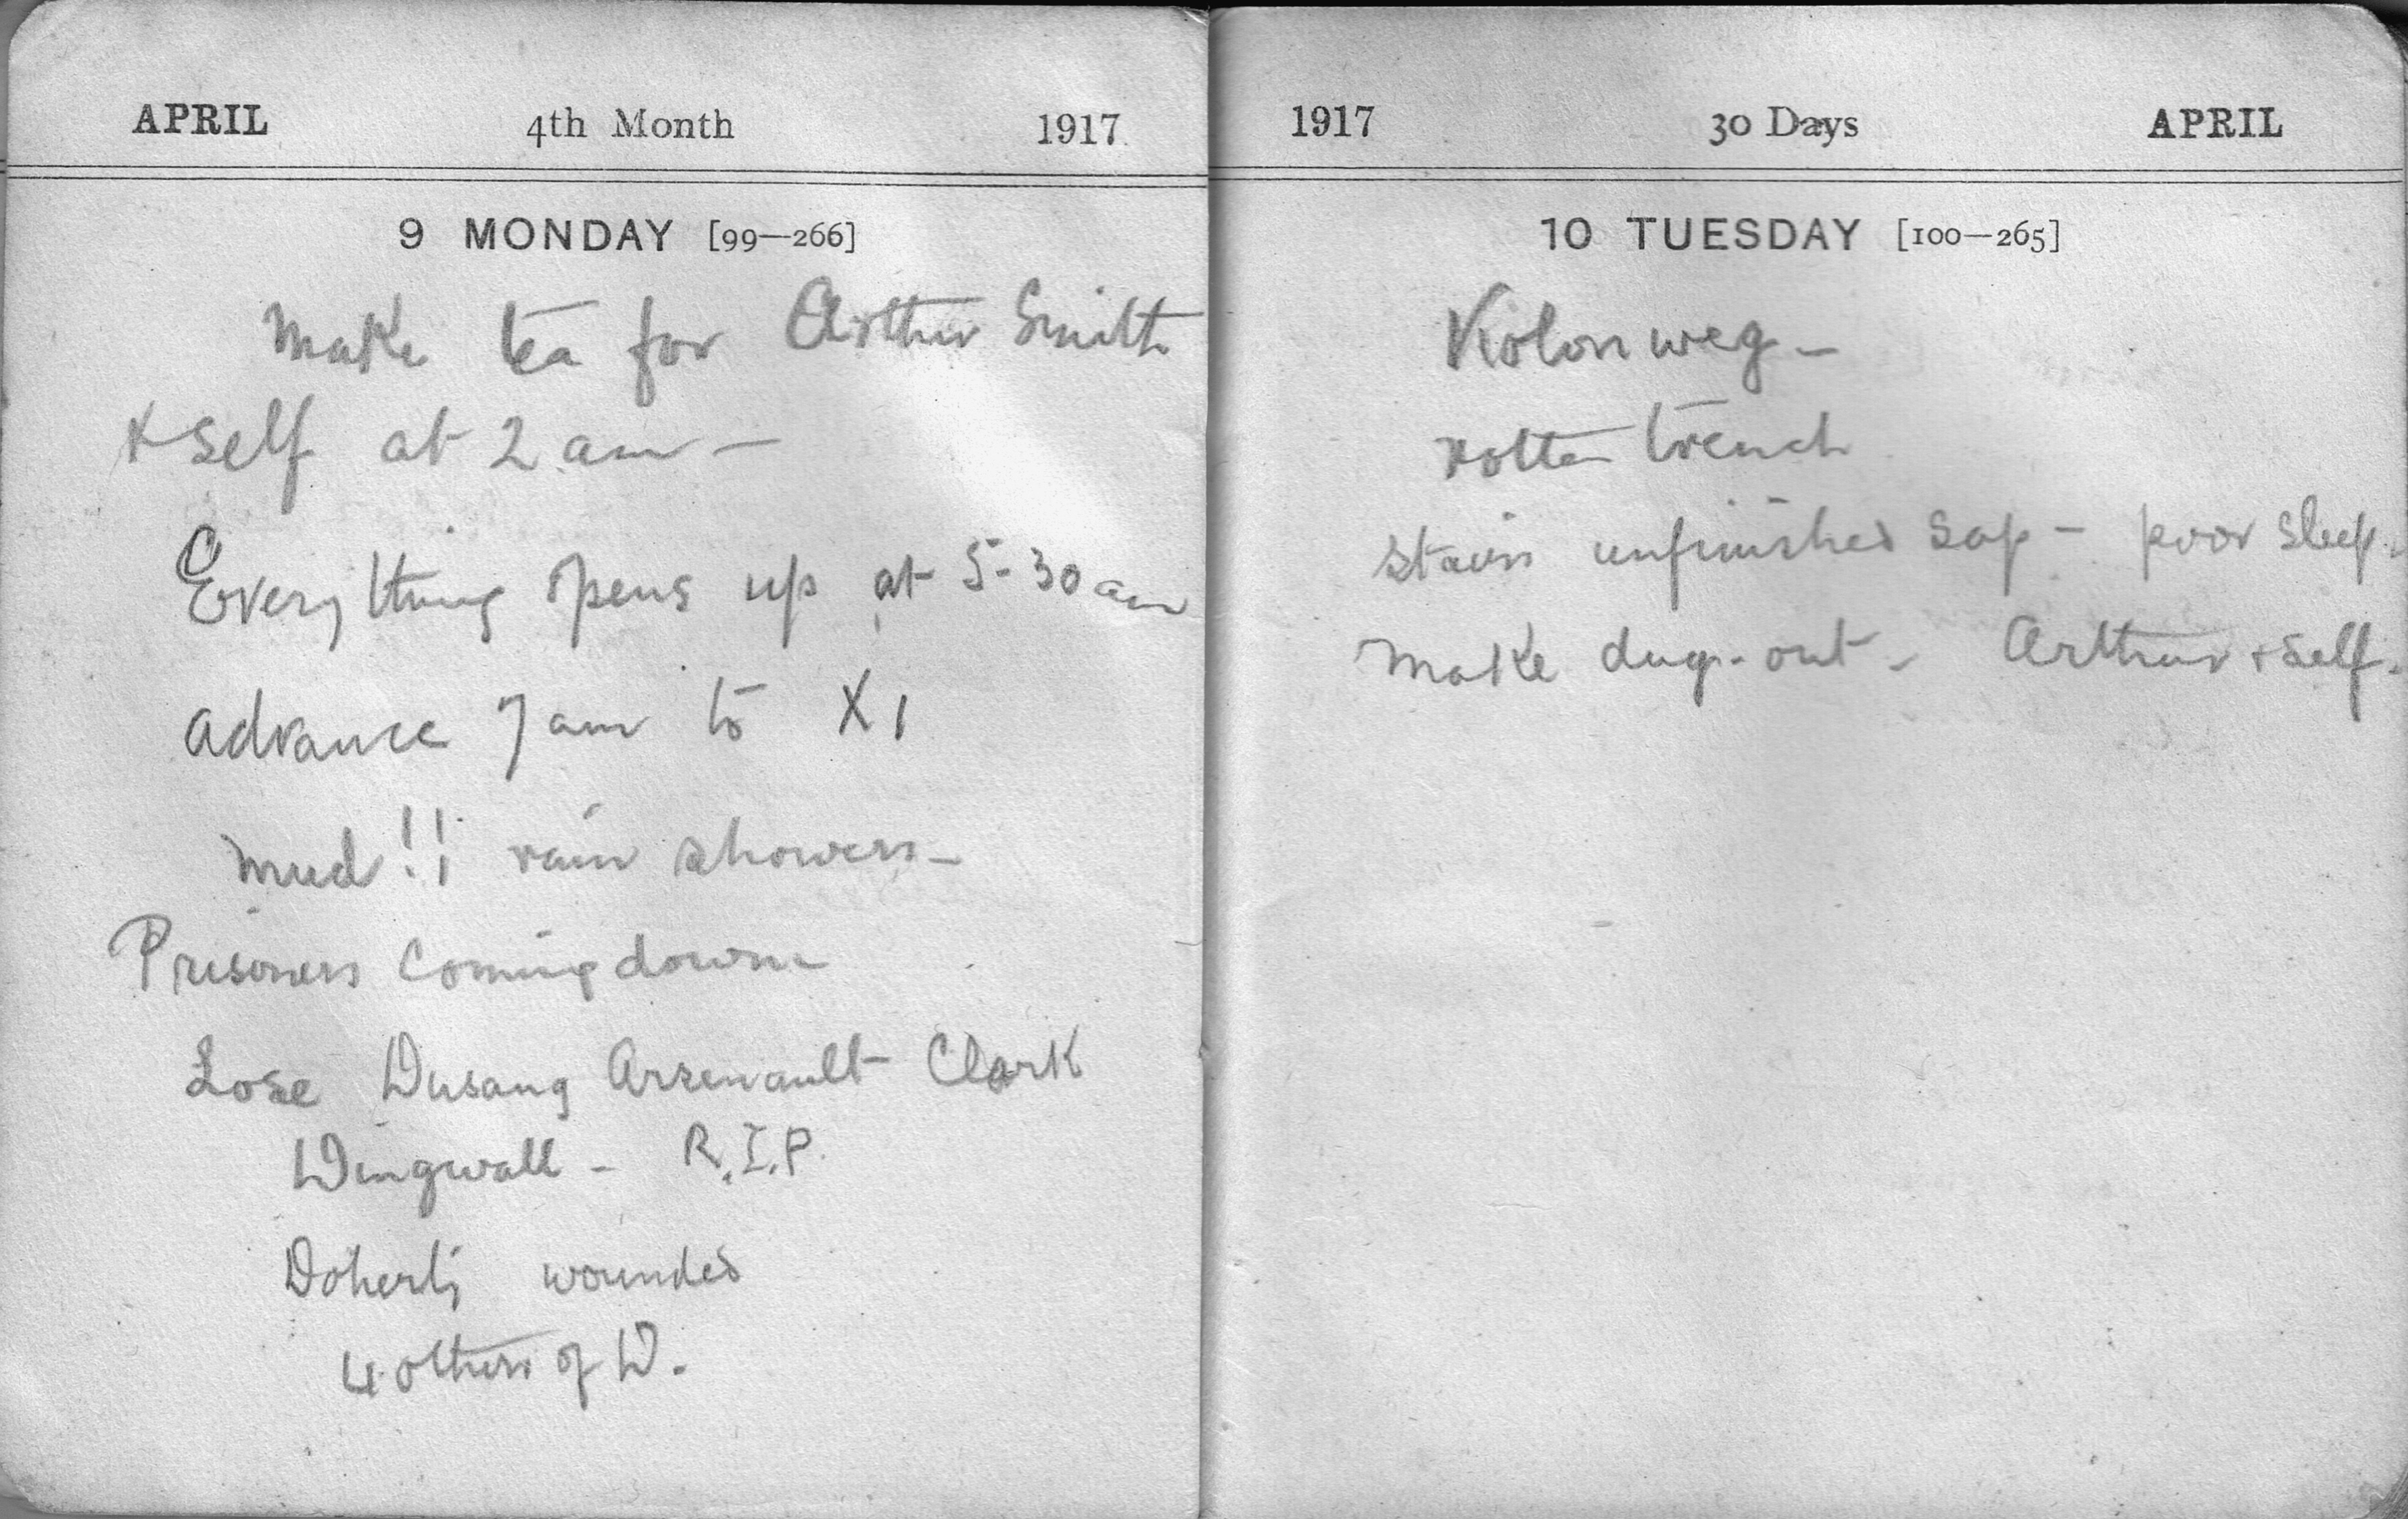 APRIL 4th Month 1917
9 MONDAY [99—266]
Make tea for Arthur Smith
+ self at 2 am —
Everything opens up at 5-30 am
advance 7 am to X 1
mud!! rain showers —
Prisoners coming down
Lose Dusang Arsenault Clark
Dingwall - R.I.P.
Doherty wounded
4 others of D.
1917 30 Days APRIL
10 TUESDAY [100—265]
Kolonweg —
rotten trench
stairs unfinished sap - poor sleep.
Make dug-out - Arthur + self.